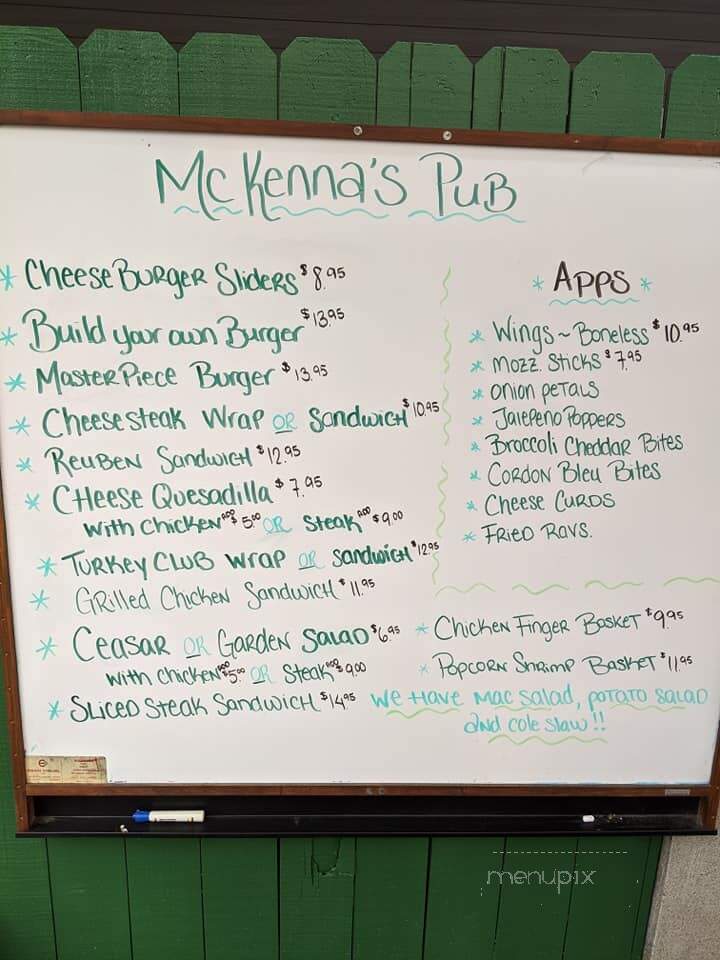 McKenna's Pub
* CheeseBurger Sliders $8.95
* Build your own Burger $13.95
* MasterPiece Burger $13.95
* Cheesesteak Wrap OR Sandwich $10.95
* Reuben Sandwich $12.95
* Cheese Quesadilla $7.95
with Chicken ADD $5.00 OR Steak ADD $9.00
* Turkey Club Wrap OR Sandwich $12.95
* Grilled Chicken Sandwich $11.95
* Ceasar OR Garden Salad $6.95
with Chicken ADD $5.00 OR Steak ADD $9.00
* Sliced Steak Sandwich $14.95
* Apps *
* Wings ~ Boneless $10.95
* Mozz. Sticks $7.95
* Onion Petals
* Jalepeno Poppers
* Broccoli Cheddar Bites
* Cordon Bleu Bites
* Cheese Curds
* Fried Ravs.
* Chicken Finger Basket $9.95
* Popcorn Shrimp Basket $11.95
We Have Mac Salad, Potato Salad
and Cole Slaw!!
menupix